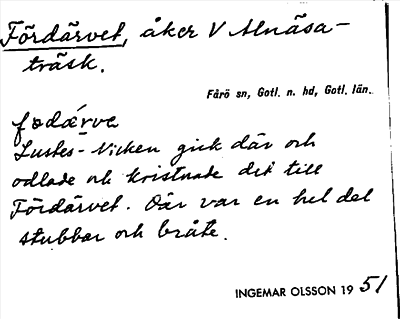 Fördärvet, åker V Alnäsa-
träsk.
Fårö sn, Gotl. n. hd, Gotl. län.
fodærve
Lustes-Nicken gick där och
odlade och kristnade det till
Fördärvet. Där var en hel del
stubbar och bråte.
INGEMAR OLSSON 19 51